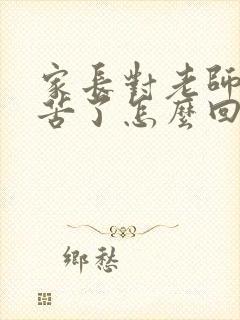 家長對老師
苦了怎麼回
鄉愁